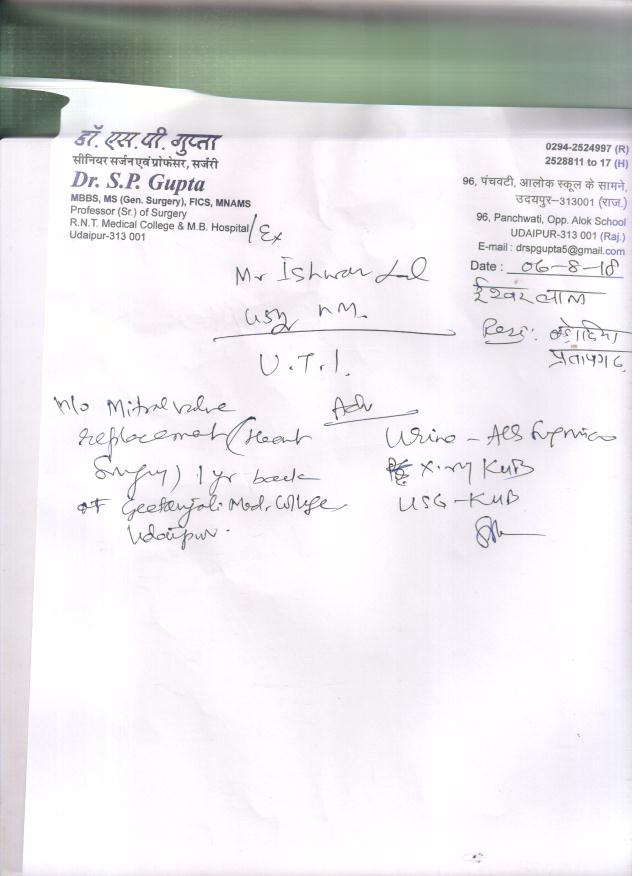 डॉ. एस.पी. गुप्ता
सीनियर सर्जन एवं प्रोफेसर, सर्जरी
Dr. S.P. Gupta
MBBS, MS (Gen. Surgery), FICS, MNAMS
Professor (Sr.) of Surgery
R.N.T. Medical College & M.B. Hospital /Ex
Udaipur-313 001
0294-2524997 (R)
2528811 to 17 (H)
96, पंचवटी, आलोक स्कूल के सामने,
उदयपुर-313001 (राज.)
96, Panchwati, Opp. Alok School
UDAIPUR-313 001 (Raj.)
E-mail : drspgupta5@gmail.com
Date : 06-8-18
ईश्वर लाल
प्रतापगढ़
Mr Ishwar Lal
U.T.I.
H/o Mitral valve
replacement (Heart
Surgery) 1 yr back
at Geetanjali Med. College
Udaipur.
Adv
Urine -
X-ray KUB
USG-KUB